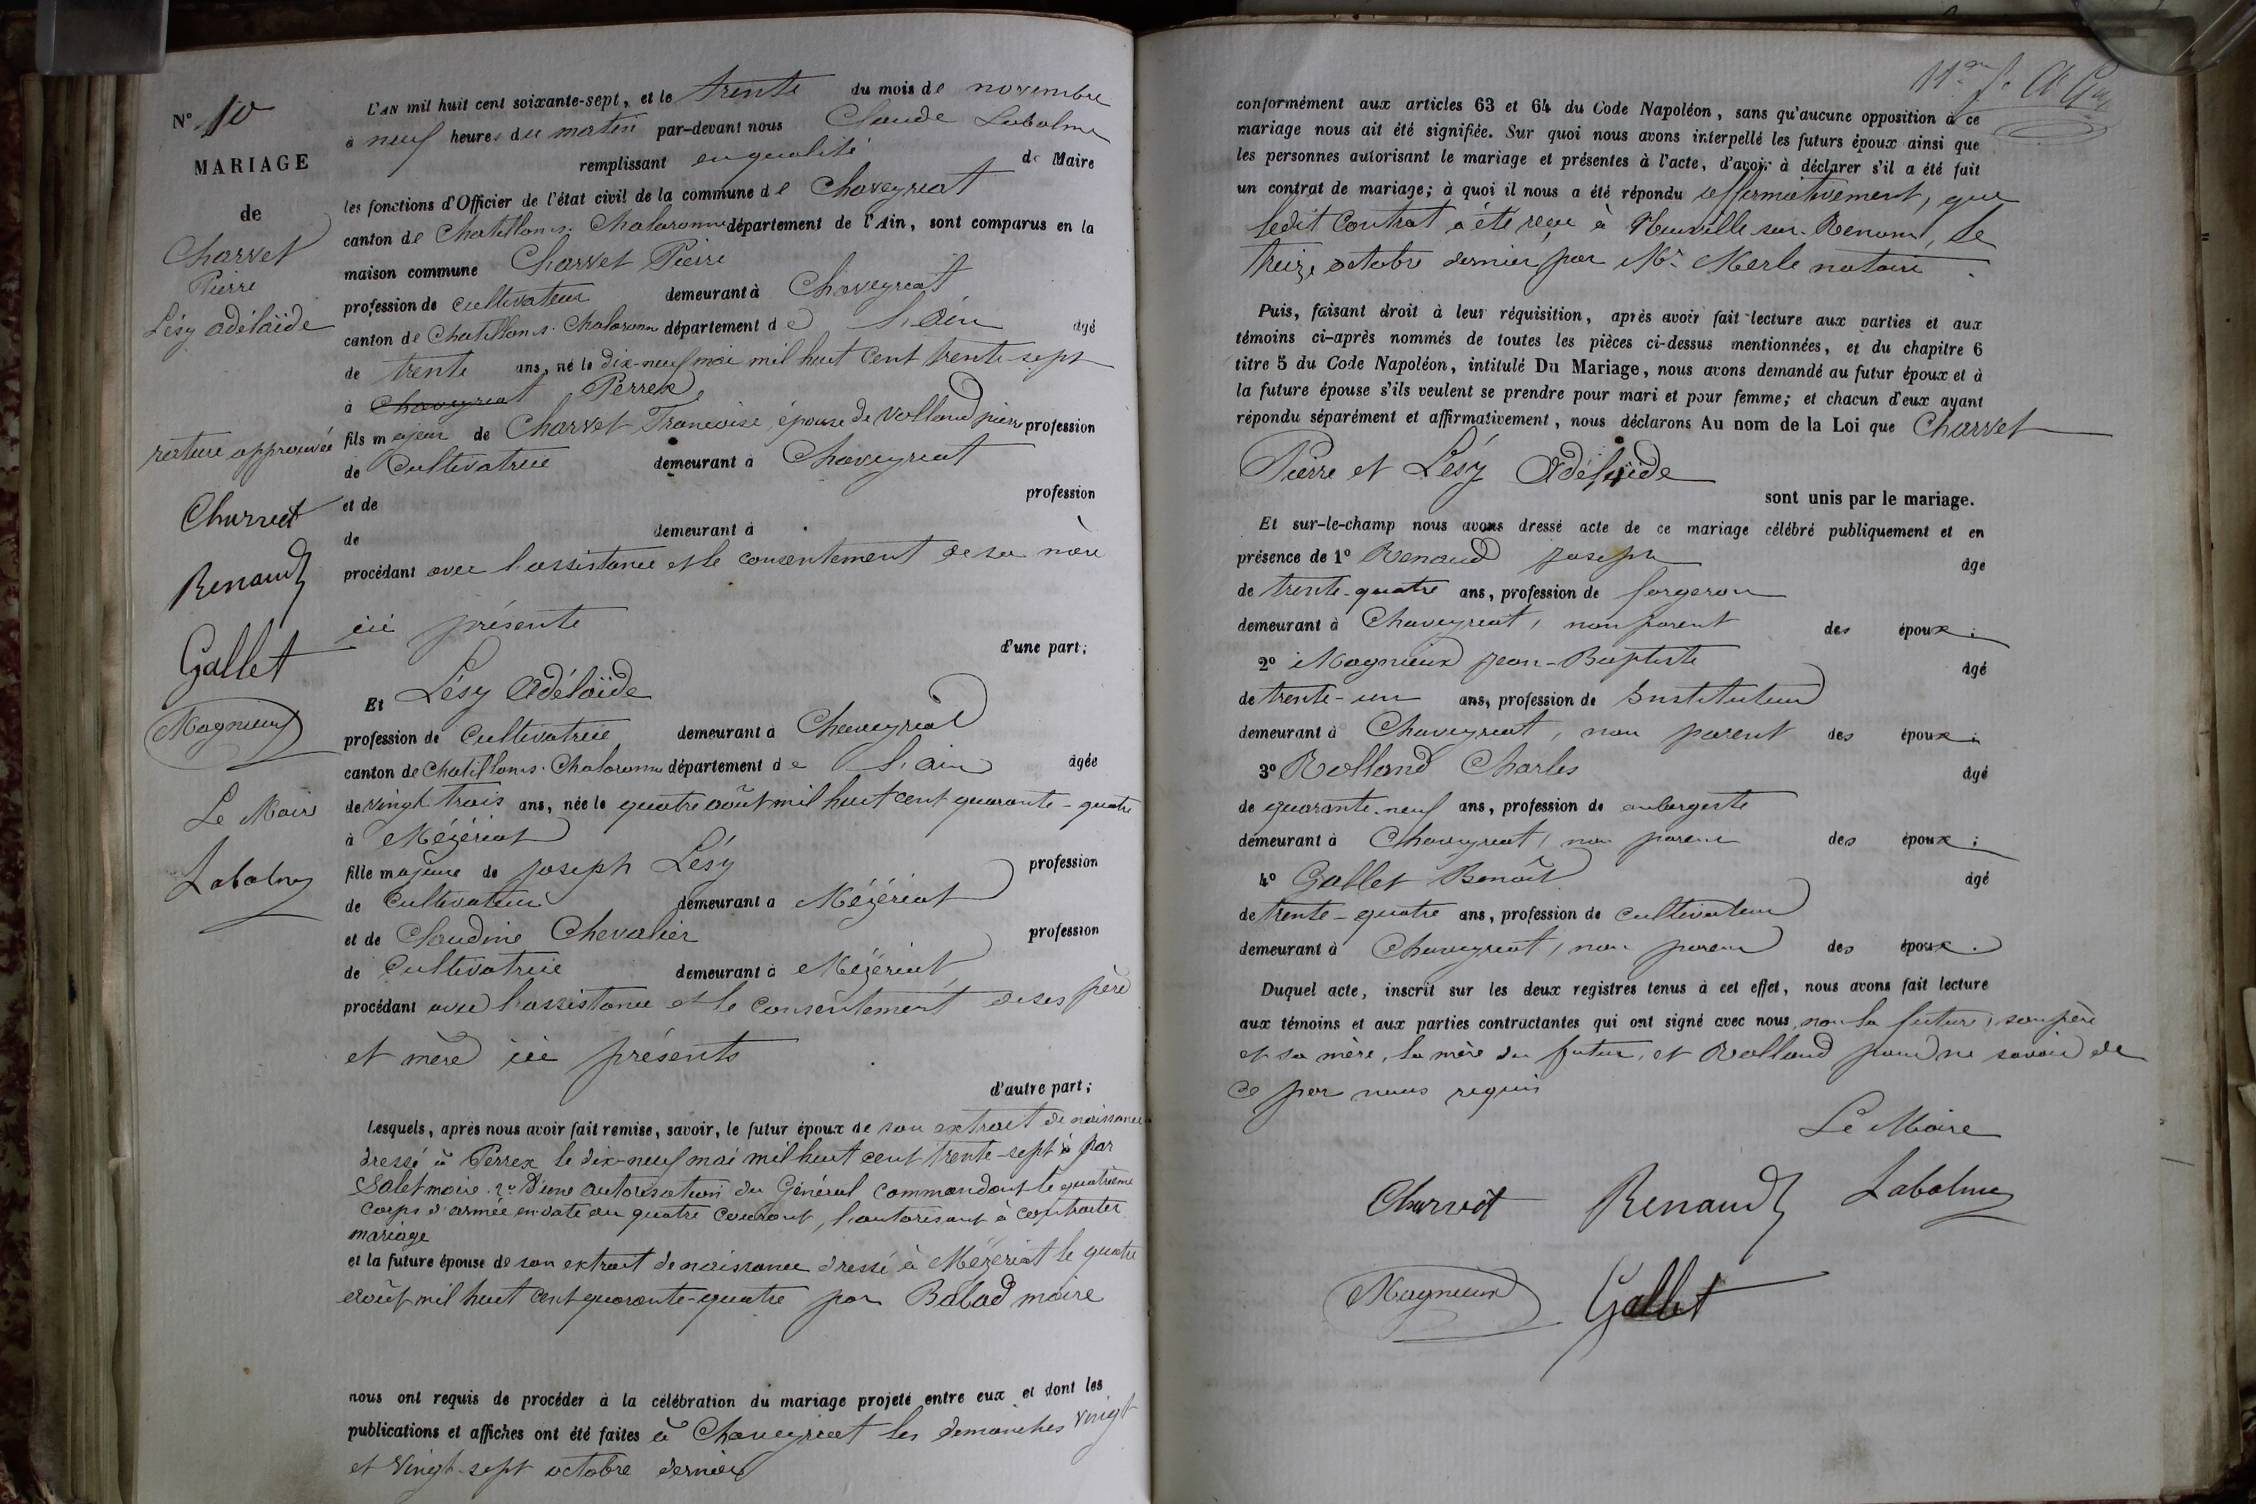 N° 10
MARIAGE
de
Charvet
Pierre
Lésy adélaïde
rature approuvée
Charvet
Renaud
Gallet
Magnieux
Le Maire
Labalme
L'AN mil huit cent soixante-sept, et le trente du mois de novembre
à neuf heures du matin par-devant nous Claude Labalme
remplissant en qualité de Maire
les fonctions d'Officier de l'état civil de la commune de Chaveyriat
canton de Chatillon-s. Chalaronne département de l'Ain, sont comparus en la
maison commune Charvet Pierre
profession de cultivateur demeurant à Chaveyriat
canton de Chatillon s. Chalaronne département de L'Ain âgé
de trente ans, né le dix-neuf mai mil huit cent trente-sept
à Chaveyriat Perrex
fils majeur de Charvet Francoise, épouse de Volland pierre profession
de Cultivatrice demeurant à Chaveyriat
et de profession
de demeurant à
procédant avec l'assistance et le consentement de sa mère
ici présente
d'une part;
Et Lésy Adélaïde
profession de Cultivatrice demeurant à Chaveyriat
canton de Chatillon s. Chalaronne département de L'ain âgée
de vingt trois ans, née le quatre août mil huit cent quarante-quatre
à Mézériat
fille majeure de Joseph Lésy profession
de Cultivateur demeurant à Mézériat
et de Claudine Chevalier profession
de Cultivatrice demeurant à Mézériat
procédant avec l'assistance et le consentement de ses père
et mère ici présents
d'autre part;
Lesquels, après nous avoir fait remise, savoir, le futur époux de son extrait de naissance
dressé à Perrex le dix-neuf mai mil huit cent trente-sept par
Salet maire 2° D'une autorisation du Général commandant le quatrième
corps d'armée en date du quatre courant, l'autorisant à contracter
mariage
et la future épouse de son extrait de naissance dressé à Mézériat le quatre
août mil huit cent quarante-quatre par Balad maire
nous ont requis de procéder à la célébration du mariage projeté entre eux et dont les
publications et affiches ont été faites à Chaveyriat les dimanches vingt
et vingt-sept octobre dernier
conformément aux articles 63 et 64 du Code Napoléon, sans qu'aucune opposition à ce
mariage nous ait été signifiée. Sur quoi nous avons interpellé les futurs époux ainsi que
les personnes autorisant le mariage et présentes à l'acte, d'avoir à déclarer s'il a été fait
un contrat de mariage; à quoi il nous a été répondu affirmativement, que
ledit Contrat a été reçu à Neuville-sur-Renom, le
treize octobre dernier par Me Merle notaire.
Puis, faisant droit à leur réquisition, après avoir fait lecture aux parties et aux
témoins ci-après nommés de toutes les pièces ci-dessus mentionnées, et du chapitre 6
titre 5 du Code Napoléon, intitulé Du Mariage, nous avons demandé au futur époux et à
la future épouse s'ils veulent se prendre pour mari et pour femme; et chacun d'eux ayant
répondu séparément et affirmativement, nous déclarons Au nom de la Loi que Charvet
Pierre et Lésy Adélaïde
sont unis par le mariage.
Et sur-le-champ nous avons dressé acte de ce mariage célébré publiquement et en
présence de 1° Renaud Joseph âgé
de trente-quatre ans, profession de forgeron
demeurant à Chaveyriat, non parent des époux;
2° Magnieux Jean-Baptiste âgé
de trente-un ans, profession de Instituteur
demeurant à Chaveyriat, non parent des époux;
3° Rolland Charles âgé
de quarante-neuf ans, profession de aubergiste
demeurant à Chaveyriat, non parent des époux;
4° Gallet Benoît âgé
de trente-quatre ans, profession de cultivateur
demeurant à Chaveyriat, non parent des époux.
Duquel acte, inscrit sur les deux registres tenus à cet effet, nous avons fait lecture
aux témoins et aux parties contractantes qui ont signé avec nous, non la future, son père
et sa mère, la mère du futur, et Rolland pour ne savoir de
ce par nous requis
Le Maire
Charvet Renaud Labalme
Magnieux Gallet